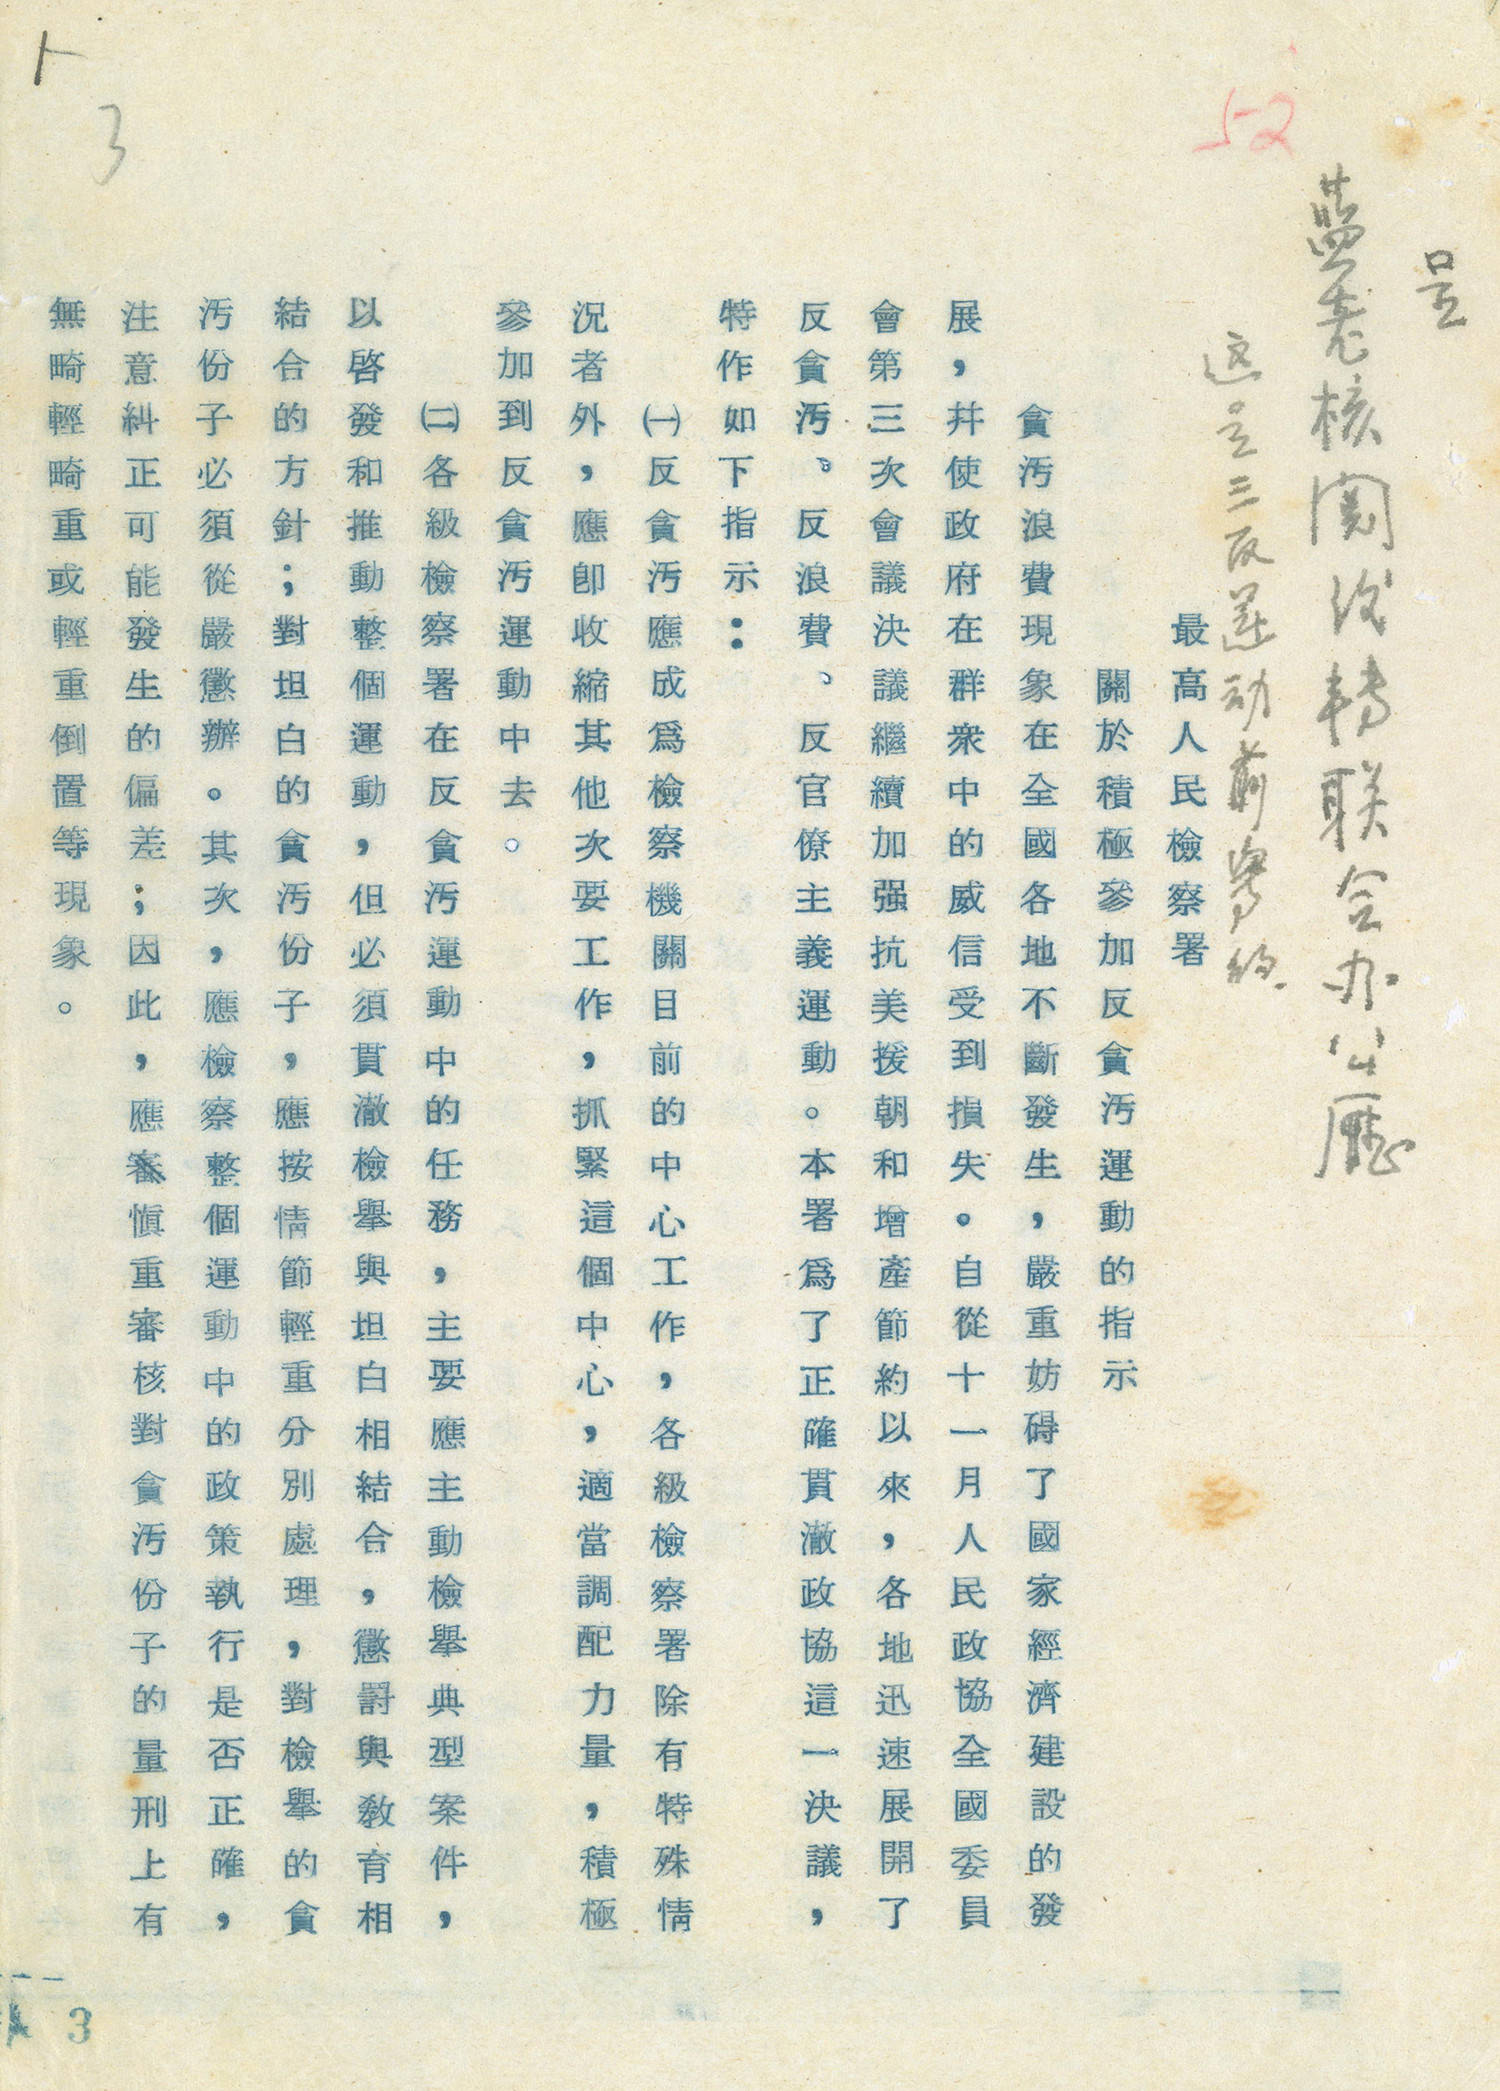 呈
蓝老核阅后转联合办公厅
这是三反运动前写的
52
最高人民檢察署
關於積極參加反貪污運動的指示
貪污浪費現象在全國各地不斷發生，嚴重妨碍了國家經濟建設的發
展，幷使政府在群衆中的威信受到損失。自從十一月人民政協全國委員
會第三次會議決議繼續加强抗美援朝和增產節約以來，各地迅速展開了
反貪污、反浪費、反官僚主義運動。本署爲了正確貫澈政協這一決議，
特作如下指示：
㈠反貪污應成爲檢察機關目前的中心工作，各級檢察署除有特殊情
況者外，應卽收縮其他次要工作，抓緊這個中心，適當調配力量，積極
參加到反貪污運動中去。
㈡各級檢察署在反貪污運動中的任務，主要應主動檢舉典型案件，
以啓發和推動整個運動，但必須貫澈檢舉與坦白相結合，懲罸與敎育相
結合的方針；對坦白的貪污份子，應按情節輕重分別處理，對檢舉的貪
污份子必須從嚴懲辦。其次，應檢察整個運動中的政策執行是否正確，
注意糾正可能發生的偏差；因此，應審愼重審核對貪污份子的量刑上有
無畸輕畸重或輕重倒置等現象。
3
3